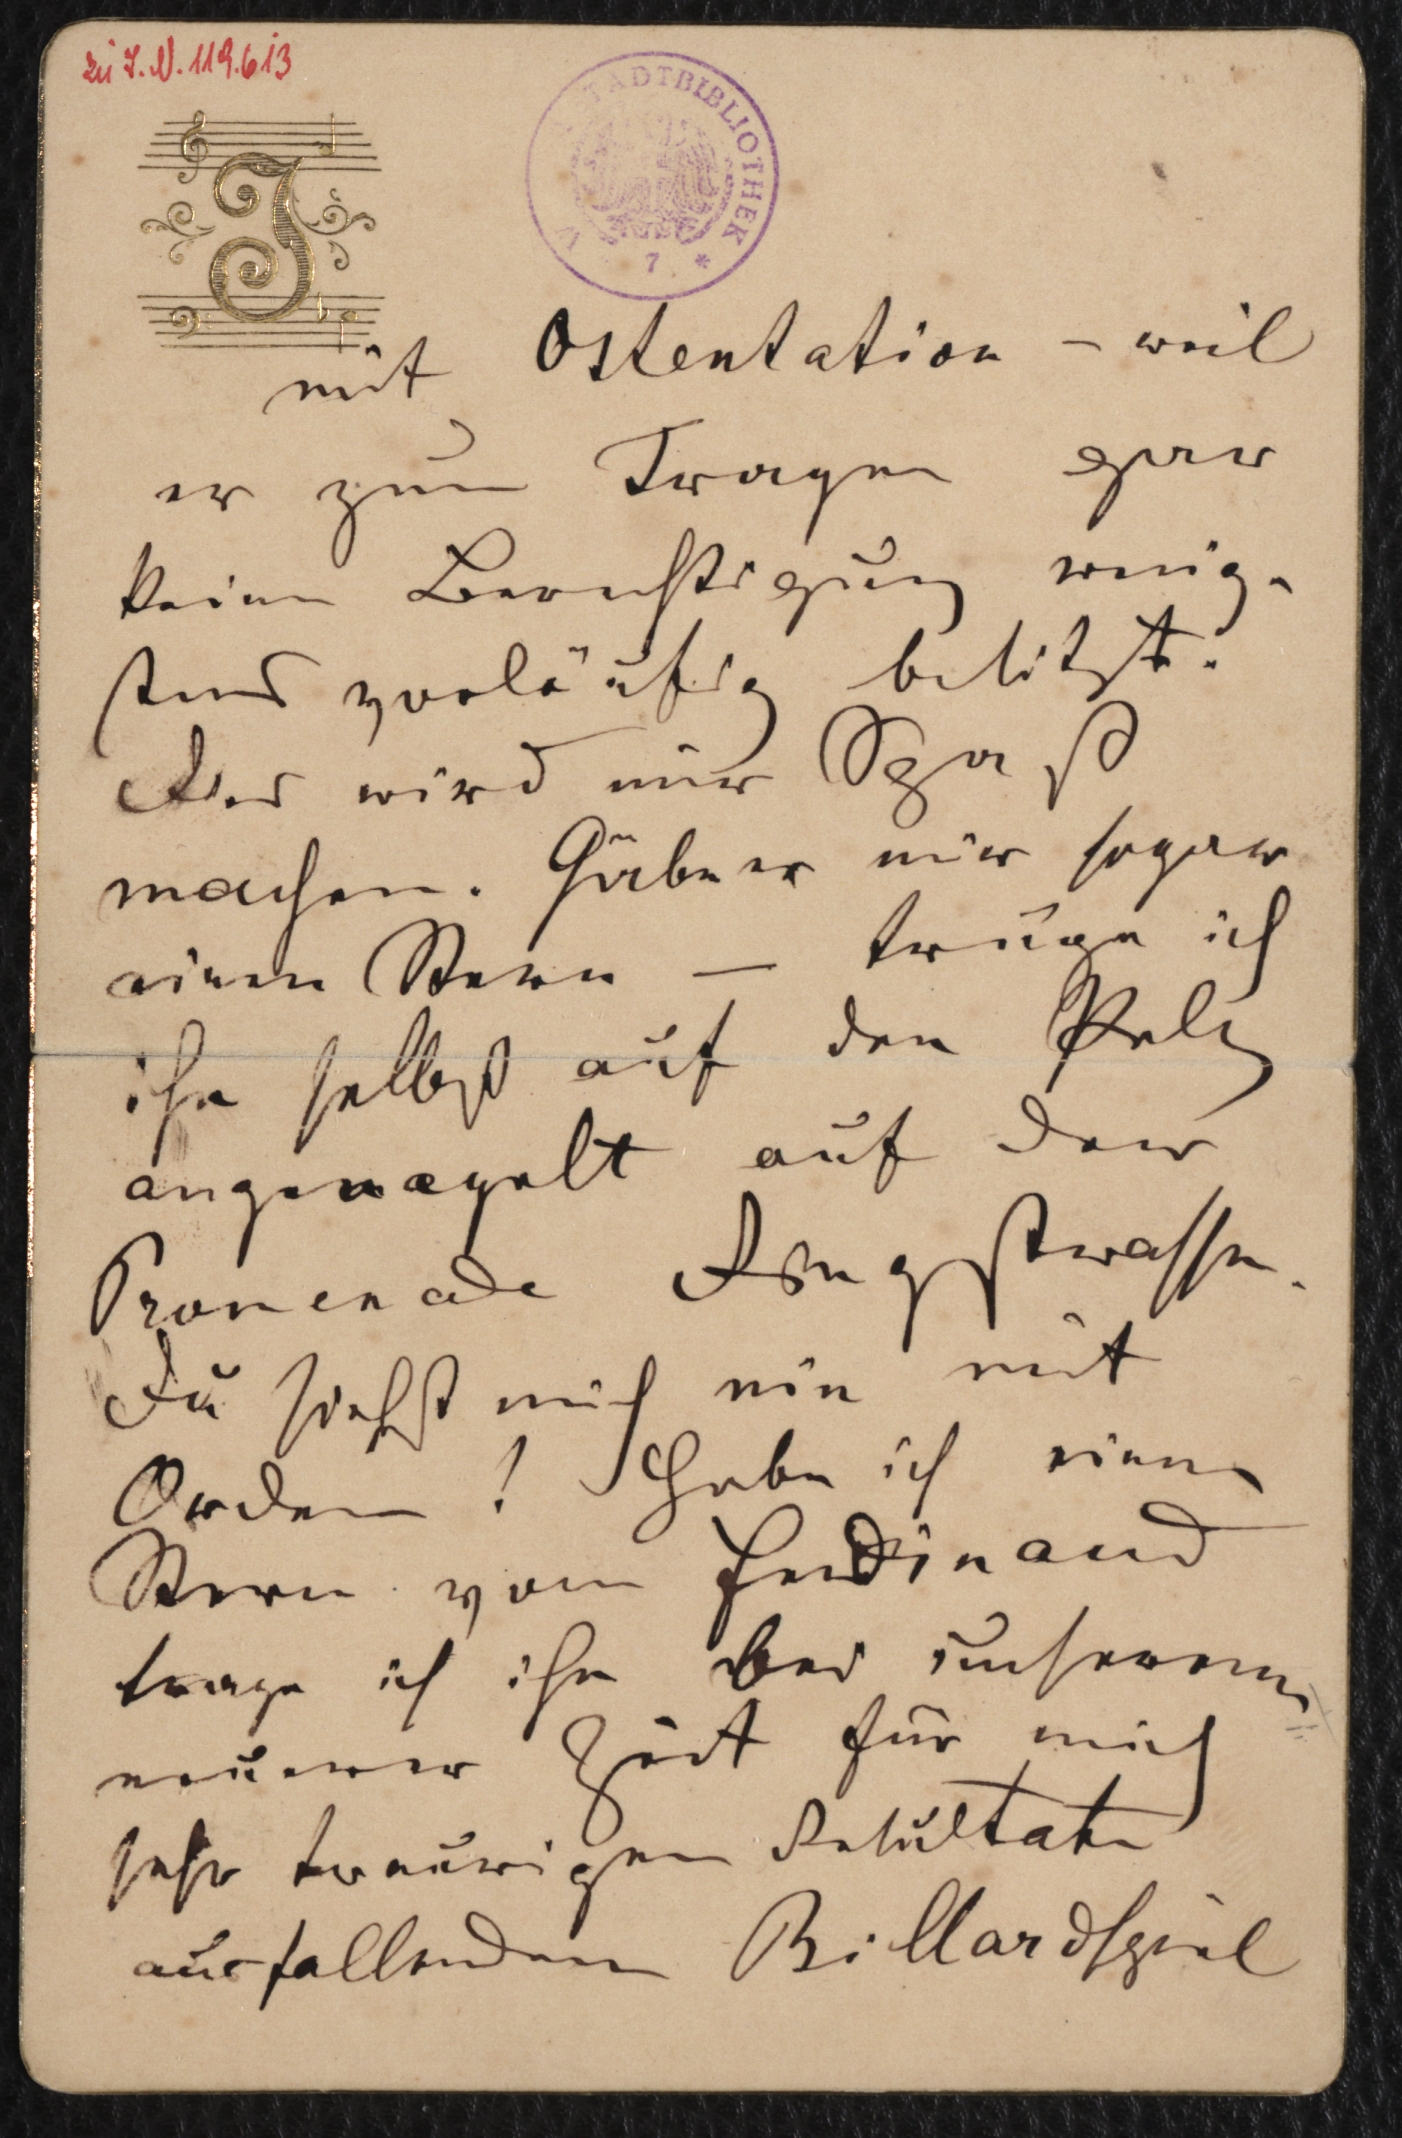 zu I.N. 119.613
STADTBIBLIOTHEK
7 *
J
mit Ostentation – weil
er zum Tragen gar
keine Berechtigung wenig-
stens vorläufig besitzt.
Das wird mir Spaß
machen. Gäbe er mir sogar
einen Stern – trüge ich
ihn selbst auf den Pelz
angenagelt auf der
Promenade Ringstrasse.
Du siehst mich nie mit
Orden! Habe ich einen
Stern vom Ferdinand
trage ich ihn bei unserem
neuerer Zeit für mich
sehr traurigen Resultate
ausfallendem Billardspiel